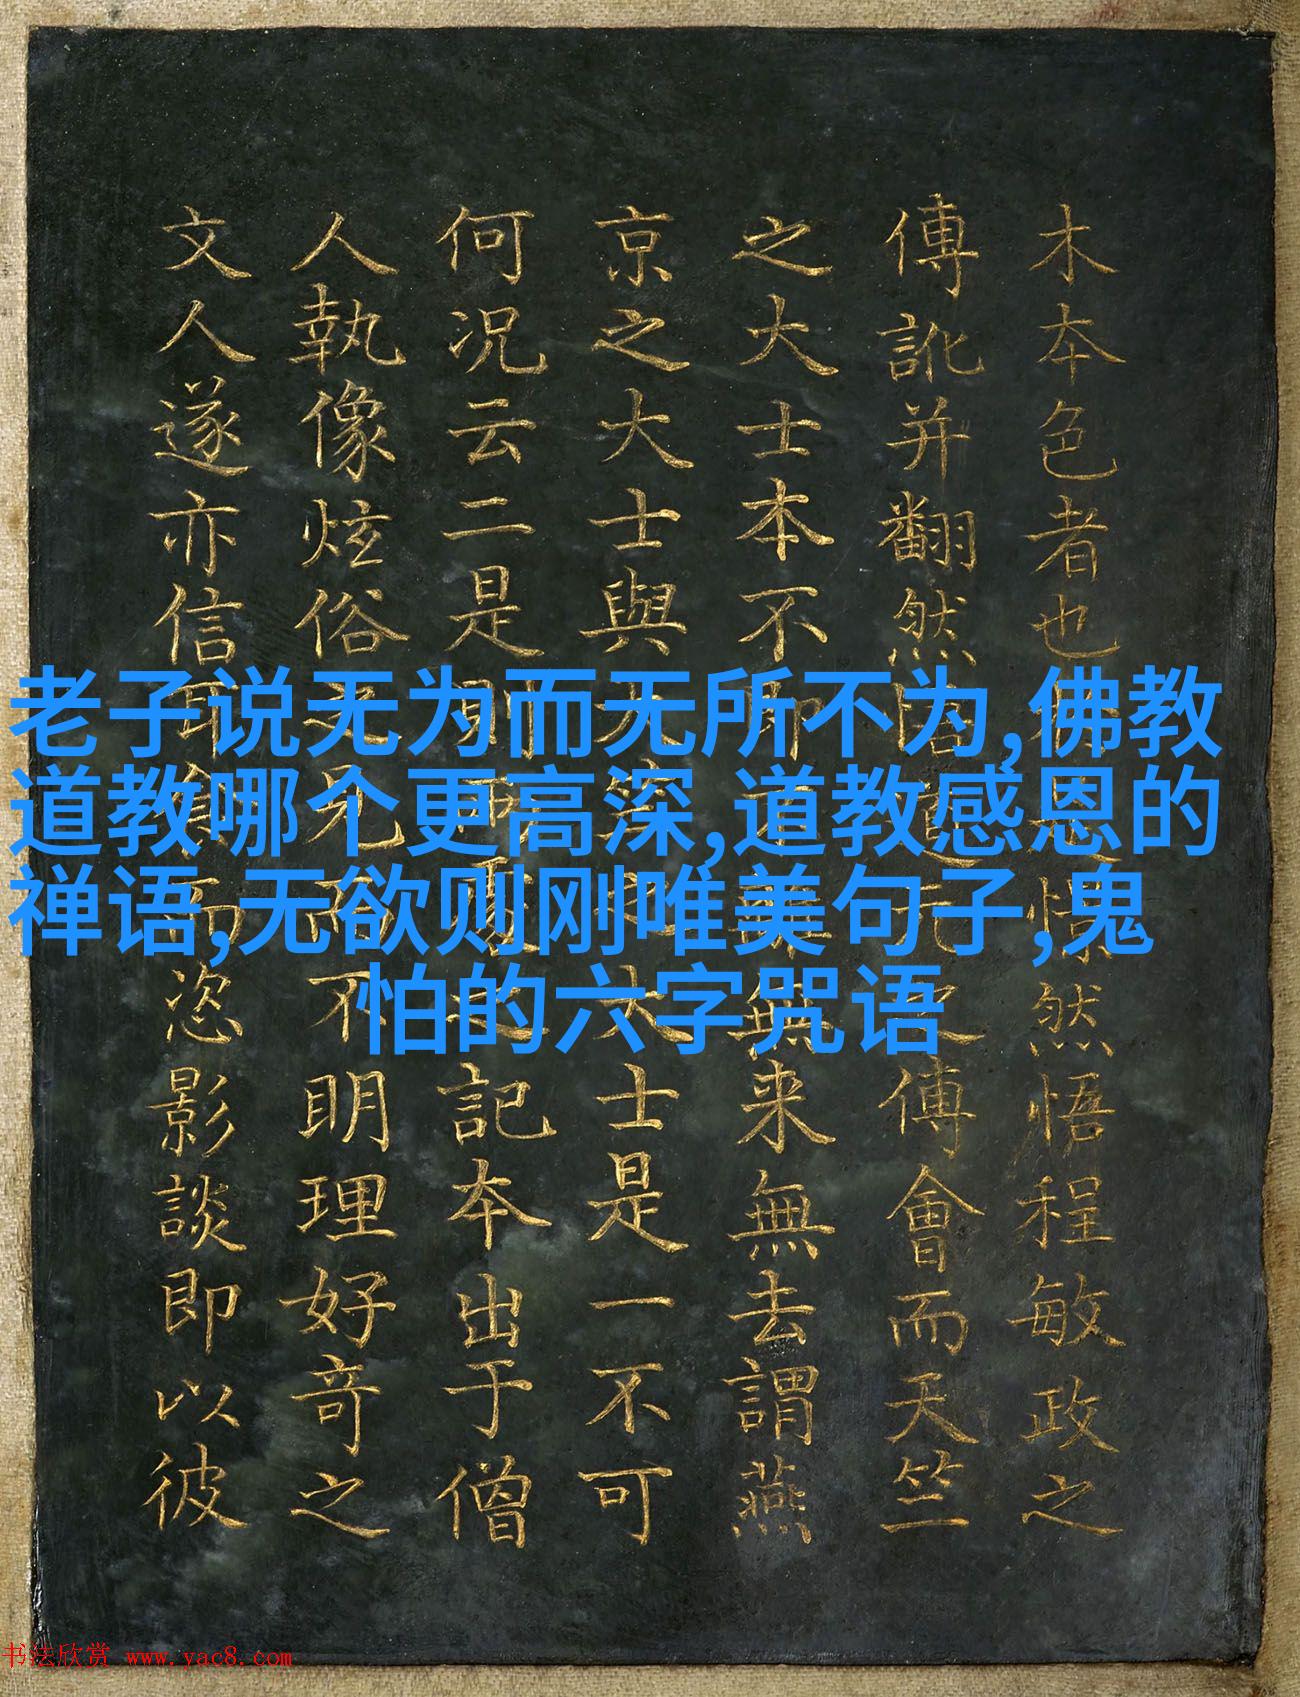 木夲色者也然悟程敏政之
傳訛并翻然傅會而天竺
之大士本不即無来無去謂燕
京之大士與大士是一不可
何况云二是則之記夲出于僧
人執像炫俗而不明理好竒之
文人遂亦信耳食而恣影談即以彼
老子说无为而无所不为,佛教
道教哪个更高深,道教感恩的
禅语,无欲则刚唯美句子,鬼
怕的六字咒语
书法欣赏 www.yac8.com